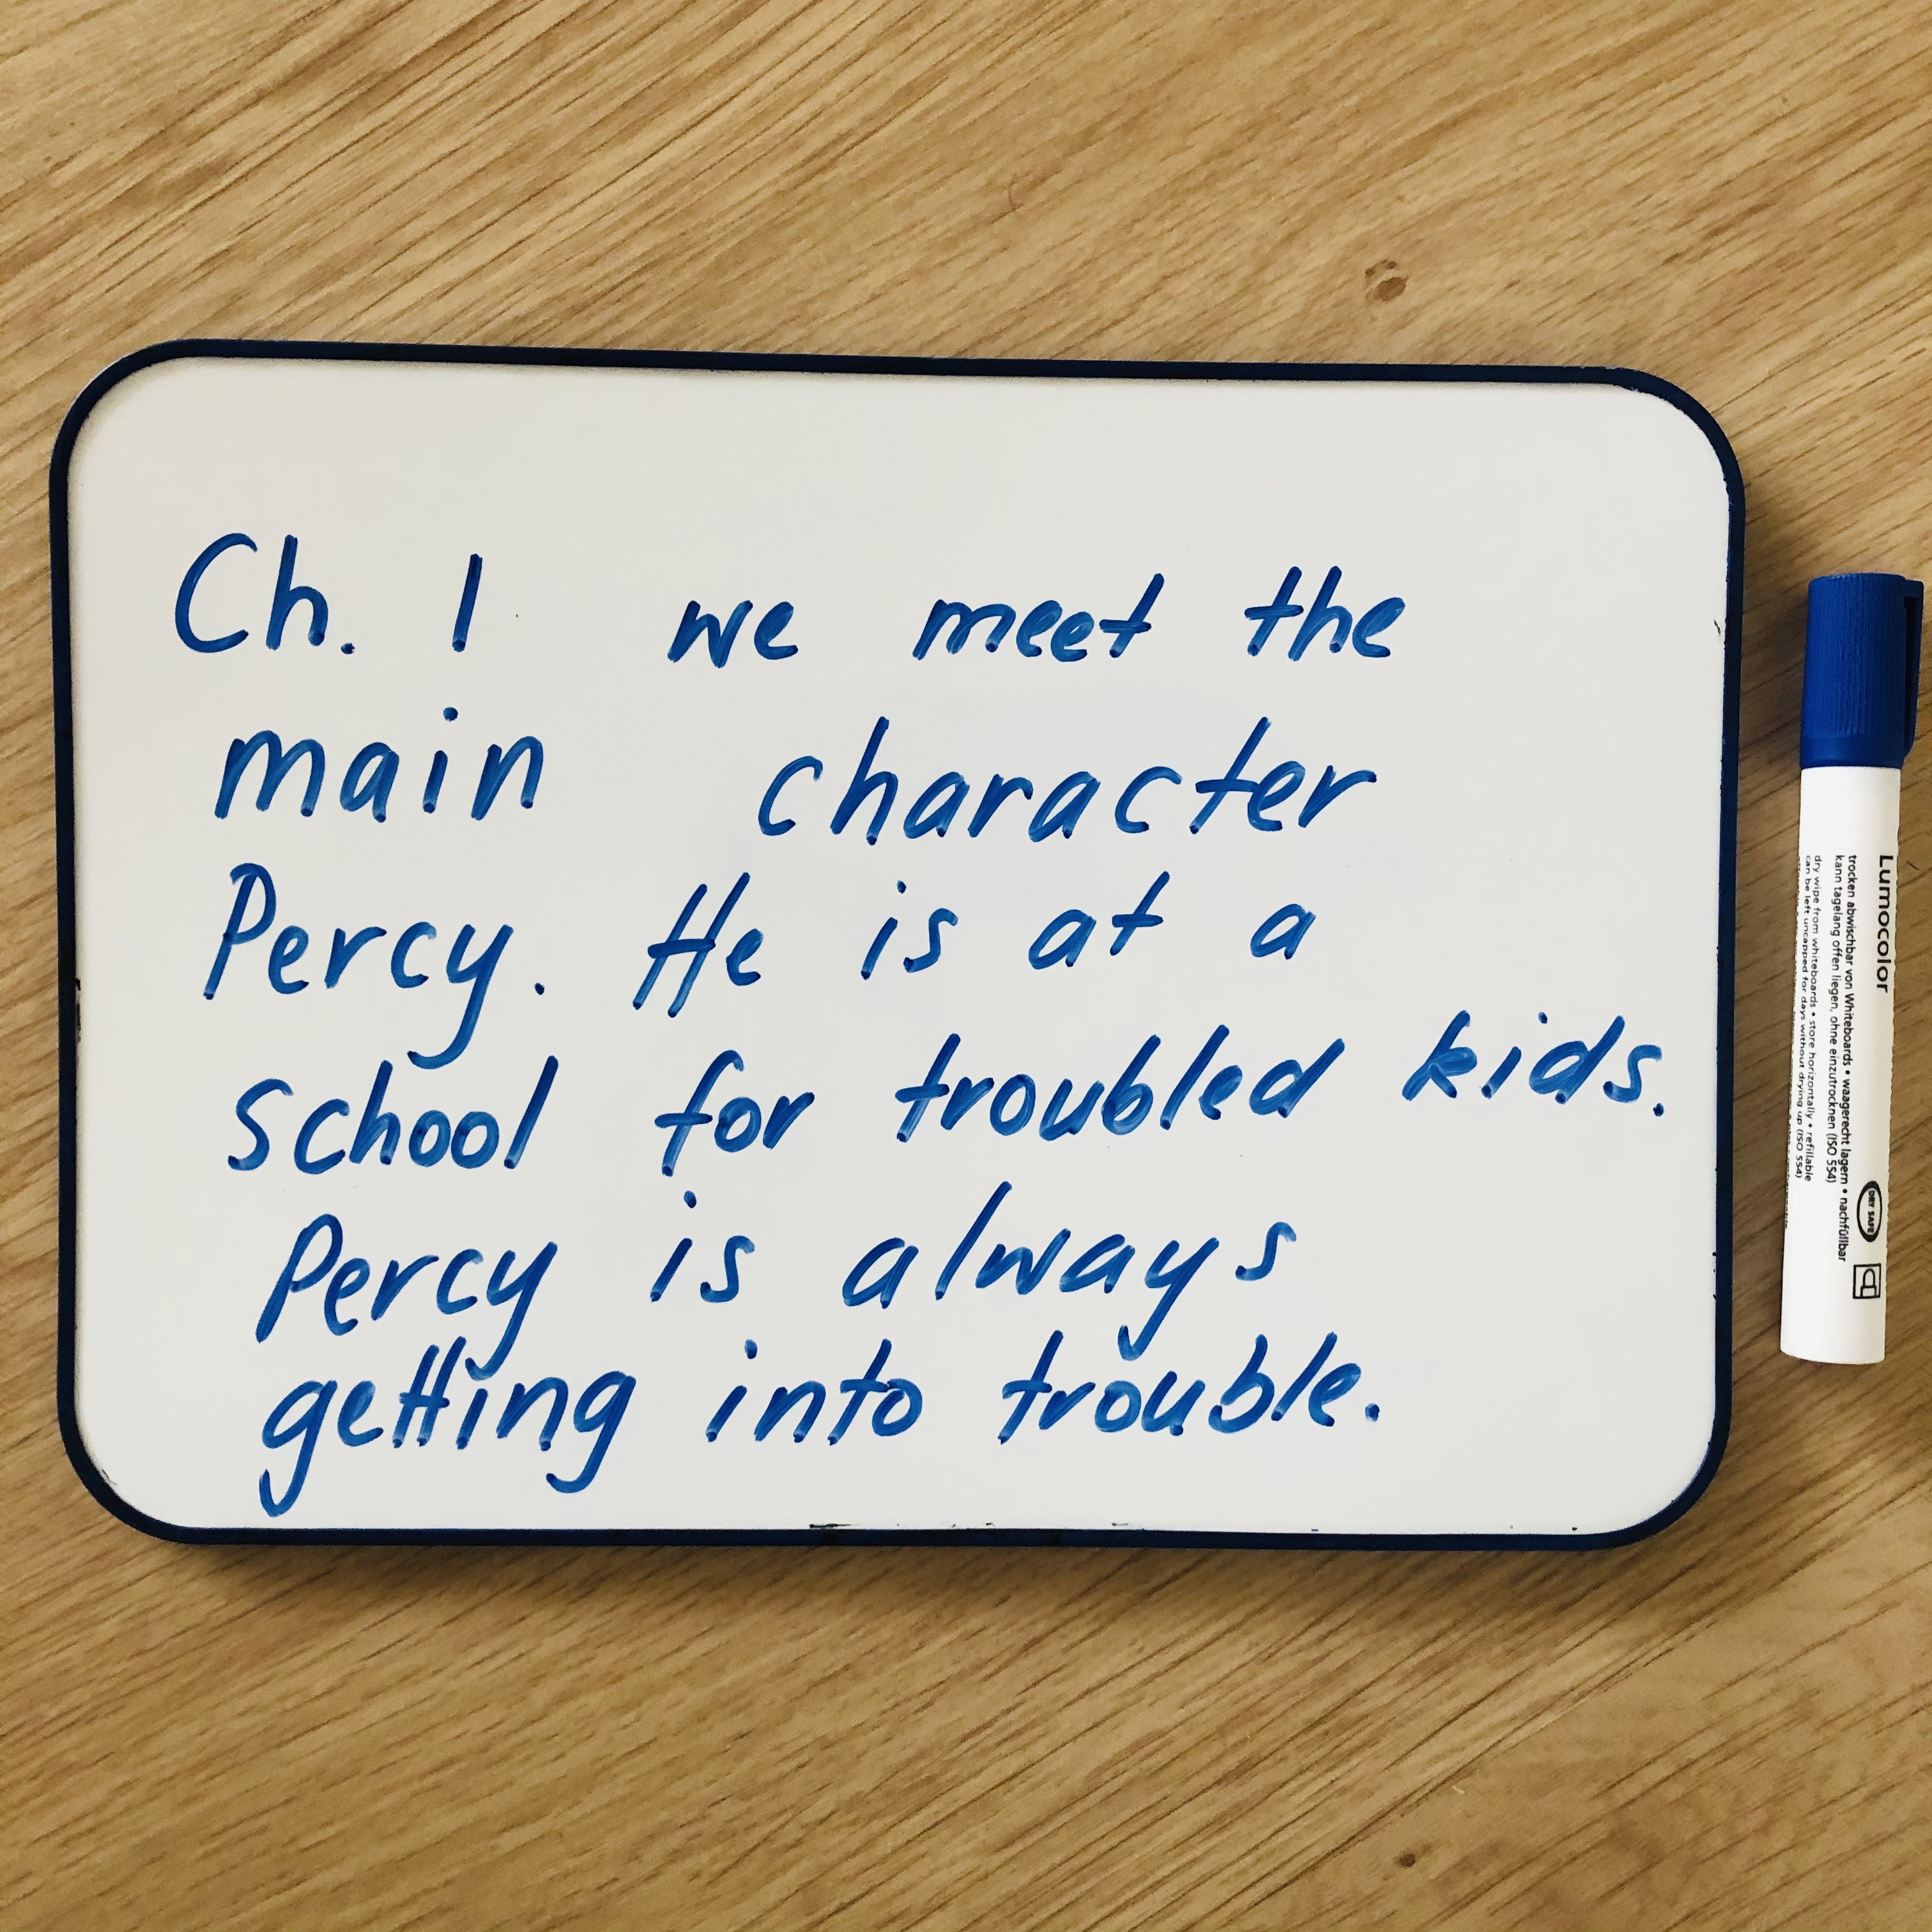 Ch. 1 we meet the
main character
Percy. He is at a
school for troubled kids.
Percy is always
getting into trouble.
Lumocolor
trocken abwischbar von Whiteboards • waagerecht lagern • nachfüllbar
kann tagelang offen liegen, ohne einzutrocknen (ISO 554)
dry wipe from whiteboards • store horizontally • refillable
can be left uncapped for days without drying up (ISO 554)
DRY SAFE